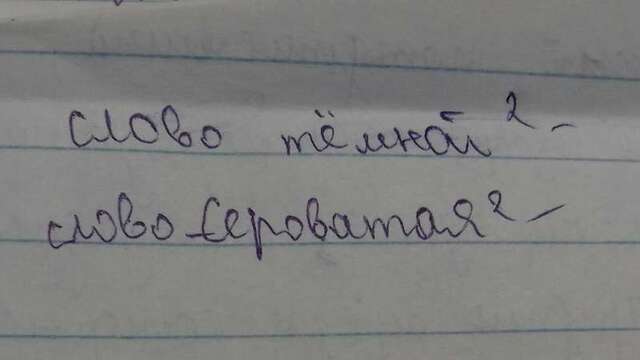 слово тёмной ² -
слово сероватая ² -